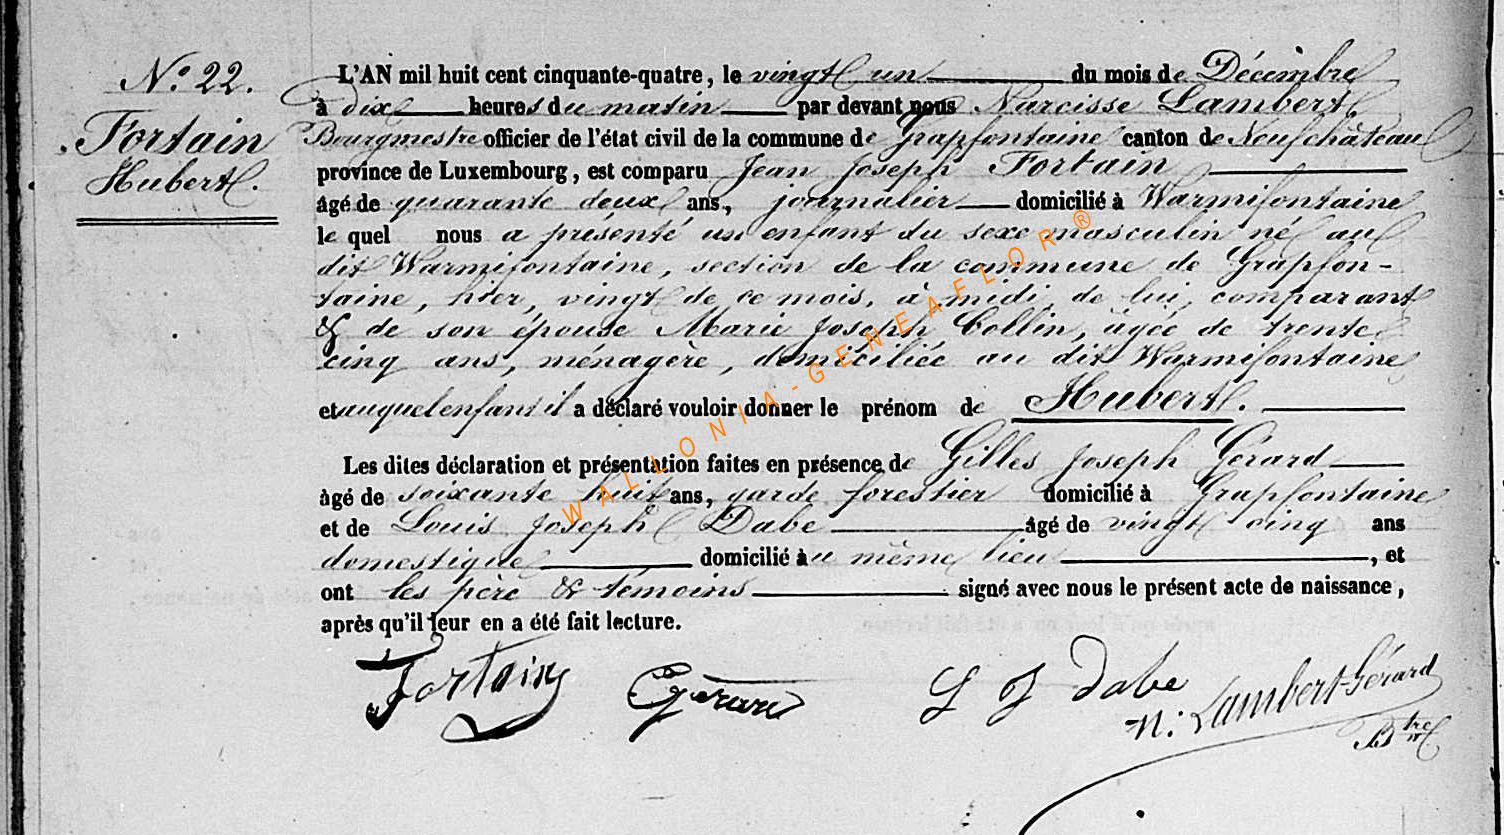 N.° 22.
Fortain
Hubert.
L'AN mil huit cent cinquante-quatre, le vingt un du mois de Décembre
à dix heures du matin par devant nous Narcisse Lambert
Bourgmestre officier de l'état civil de la commune de Grapfontaine canton de Neufchâteau
province de Luxembourg, est comparu Jean Joseph Fortain
âgé de quarante deux ans, journalier domicilié à Warmifontaine
le quel nous a présenté un enfant du sexe masculin né au
dit Warmifontaine, section de la commune de Grapfon-
taine, hier, vingt de ce mois, à midi, de lui, comparant
& de son épouse Marie Joseph Collin, âgée de trente
cinq ans, ménagère, domiciliée au dit Warmifontaine
et auquel enfant il a déclaré vouloir donner le prénom de Hubert.
Les dites déclaration et présentation faites en présence de Gilles Joseph Gérard
âgé de soixante huit ans, garde forestier domicilié à Grapfontaine
et de Louis Joseph Dabe âgé de vingt cinq ans
domestique domicilié au même lieu, et
ont les père & témoins signé avec nous le présent acte de naissance,
après qu'il leur en a été fait lecture.
Fortain Gérard L J Dabe N. Lambert-Gérard
Btre
WALLONIA-GENEAFLOR®